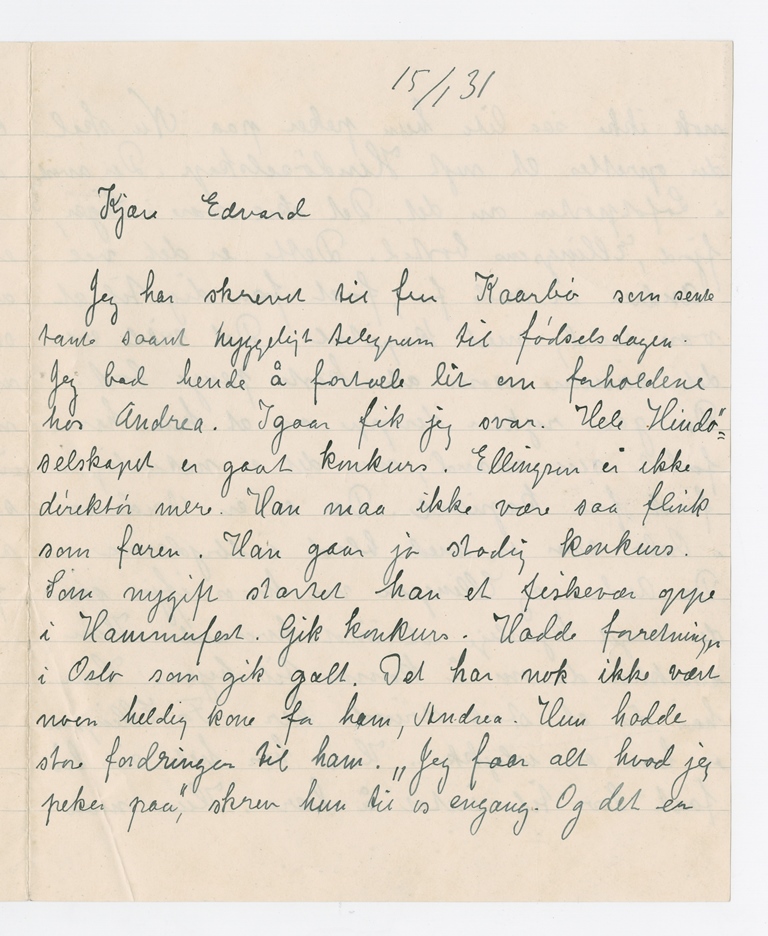 15/1 31
Kjære Edvard
Jeg har skrevet til fru Kaarbø som sente
tante saant hyggeligt telegram til fødselsdagen.
Jeg bad hende å fortæle lit om forholdene
hos Andrea. Igaar fik jeg svar. Hele Hindø=
selskapet er gaat konkurs. Ellingsen er ikke
direktør mere. Han maa ikke være saa flink
som faren. Han gaar jo stadig konkurs.
Som nygift startet han et fiskevær oppe
i Hammerfest. Gik konkurs. Hadde forretninger
i Oslo som gik galt. Det har nok ikke vært
noen heldig kone for ham, Andrea. Hun hadde
store fordringer til ham. „Jeg faar alt hvad jeg
peker paa”, skrev hun til os engang. Og det er